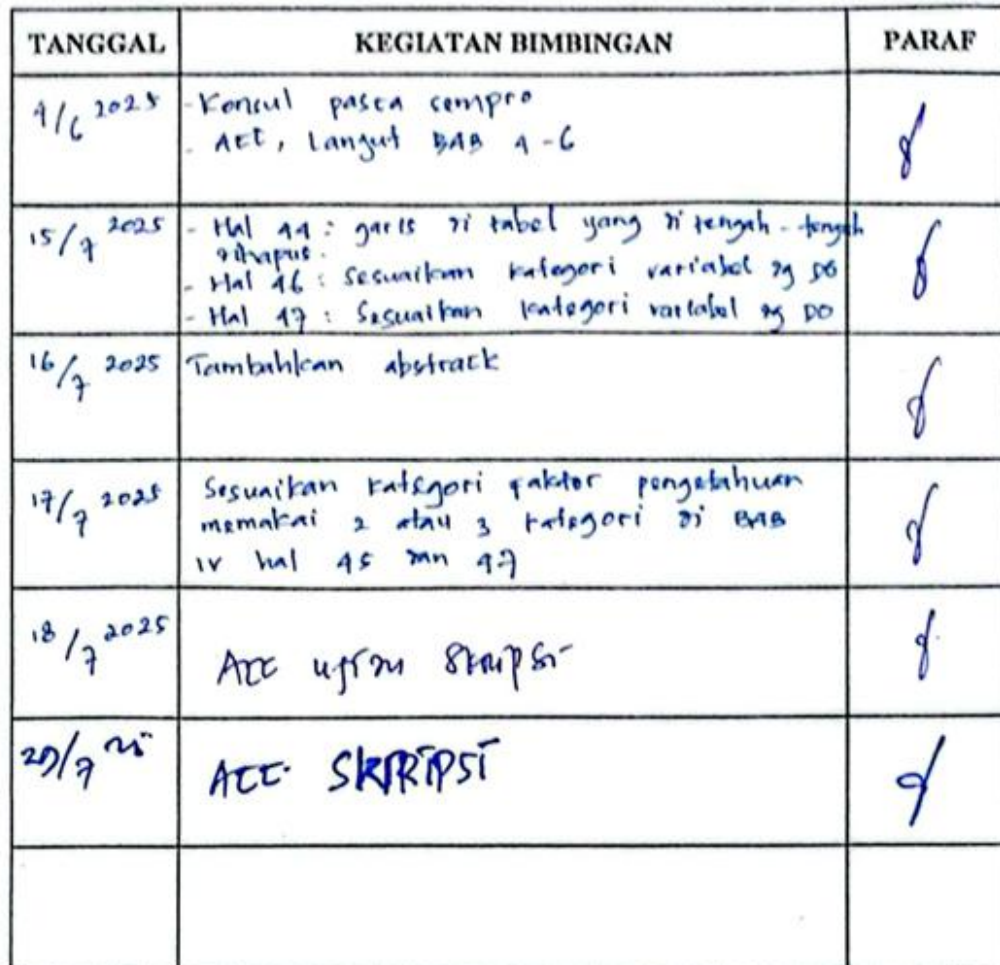 TANGGAL KEGIATAN BIMBINGAN PARAF
4/6 2025 - Konsul pasca sempro
- ACC, Langut BAB 4 - 6
15/7 2025 - Hal 44 : garis di tabel yang di tengah - tengah
dihapus.
- Hal 46 : Sesuaikan kategori variabel dg DO
- Hal 47 : Sesuaikan kategori variabel dg DO
16/7 2025 Tambahkan abstrack
17/7 2025 Sesuaikan kategori faktor pengetahuan
memakai 2 atau 3 kategori di BAB
IV hal 45 dan 47
18/7 2025 ACC ujian Skripsi
/7 25 ACC SKRIPSI